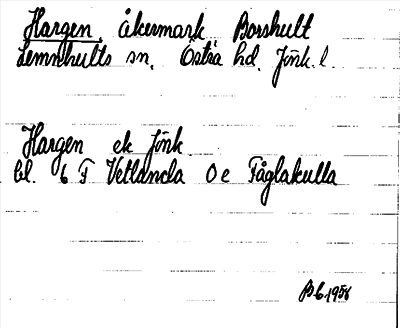 Hargen, åkermark Borshult
Lemnhults sn. Östra hd. Jönk. l.
Hargen ek Jönk
bl. 6 F Vetlanda 0 e Fåglakulla
B.G. 1958